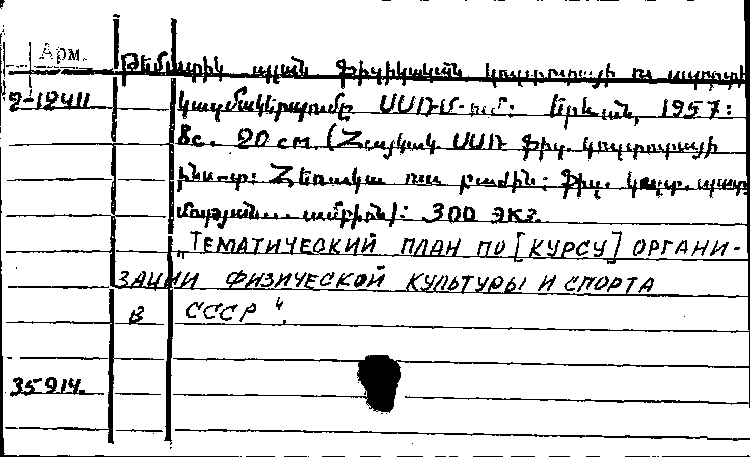 Арм.
Թեմատիկ պլան Ֆիզիկական կուլտուրայի ու սպորտի
2-12411 կազմակերպումը ՍՍՌՄ-ում: Երևան, 1957:
8с. 20 см. (Հայկակ ՍՍՌ Ֆիզ. կուլտուրայի
ինս-տ: Հեռակա ուս բաժին: Ֆիզ. կուլտ.
ամբիոն): 300 экз.
„ТЕМАТИЧЕСКИЙ ПЛАН ПО [КУРСУ] ОРГАНИ-
ЗАЦИИ ФИЗИЧЕСКОЙ КУЛЬТУРЫ И СПОРТА
В СССР“.
35914.